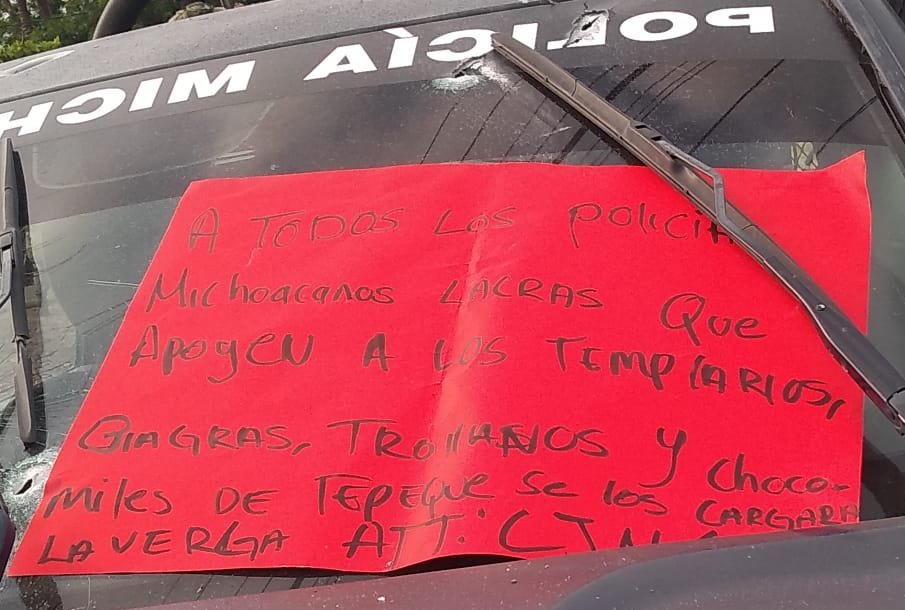 POLICÍA MICH
A TODOS LOS POLICIA
MICHOACANOS LACRAS QUE
APOYEN A LOS TEMPLARIOS,
BIAGRAS, TROLLANOS Y CHOCO-
MILES DE TEPEQUE SE LOS CARGARA
LA VERGA ATT: CJN